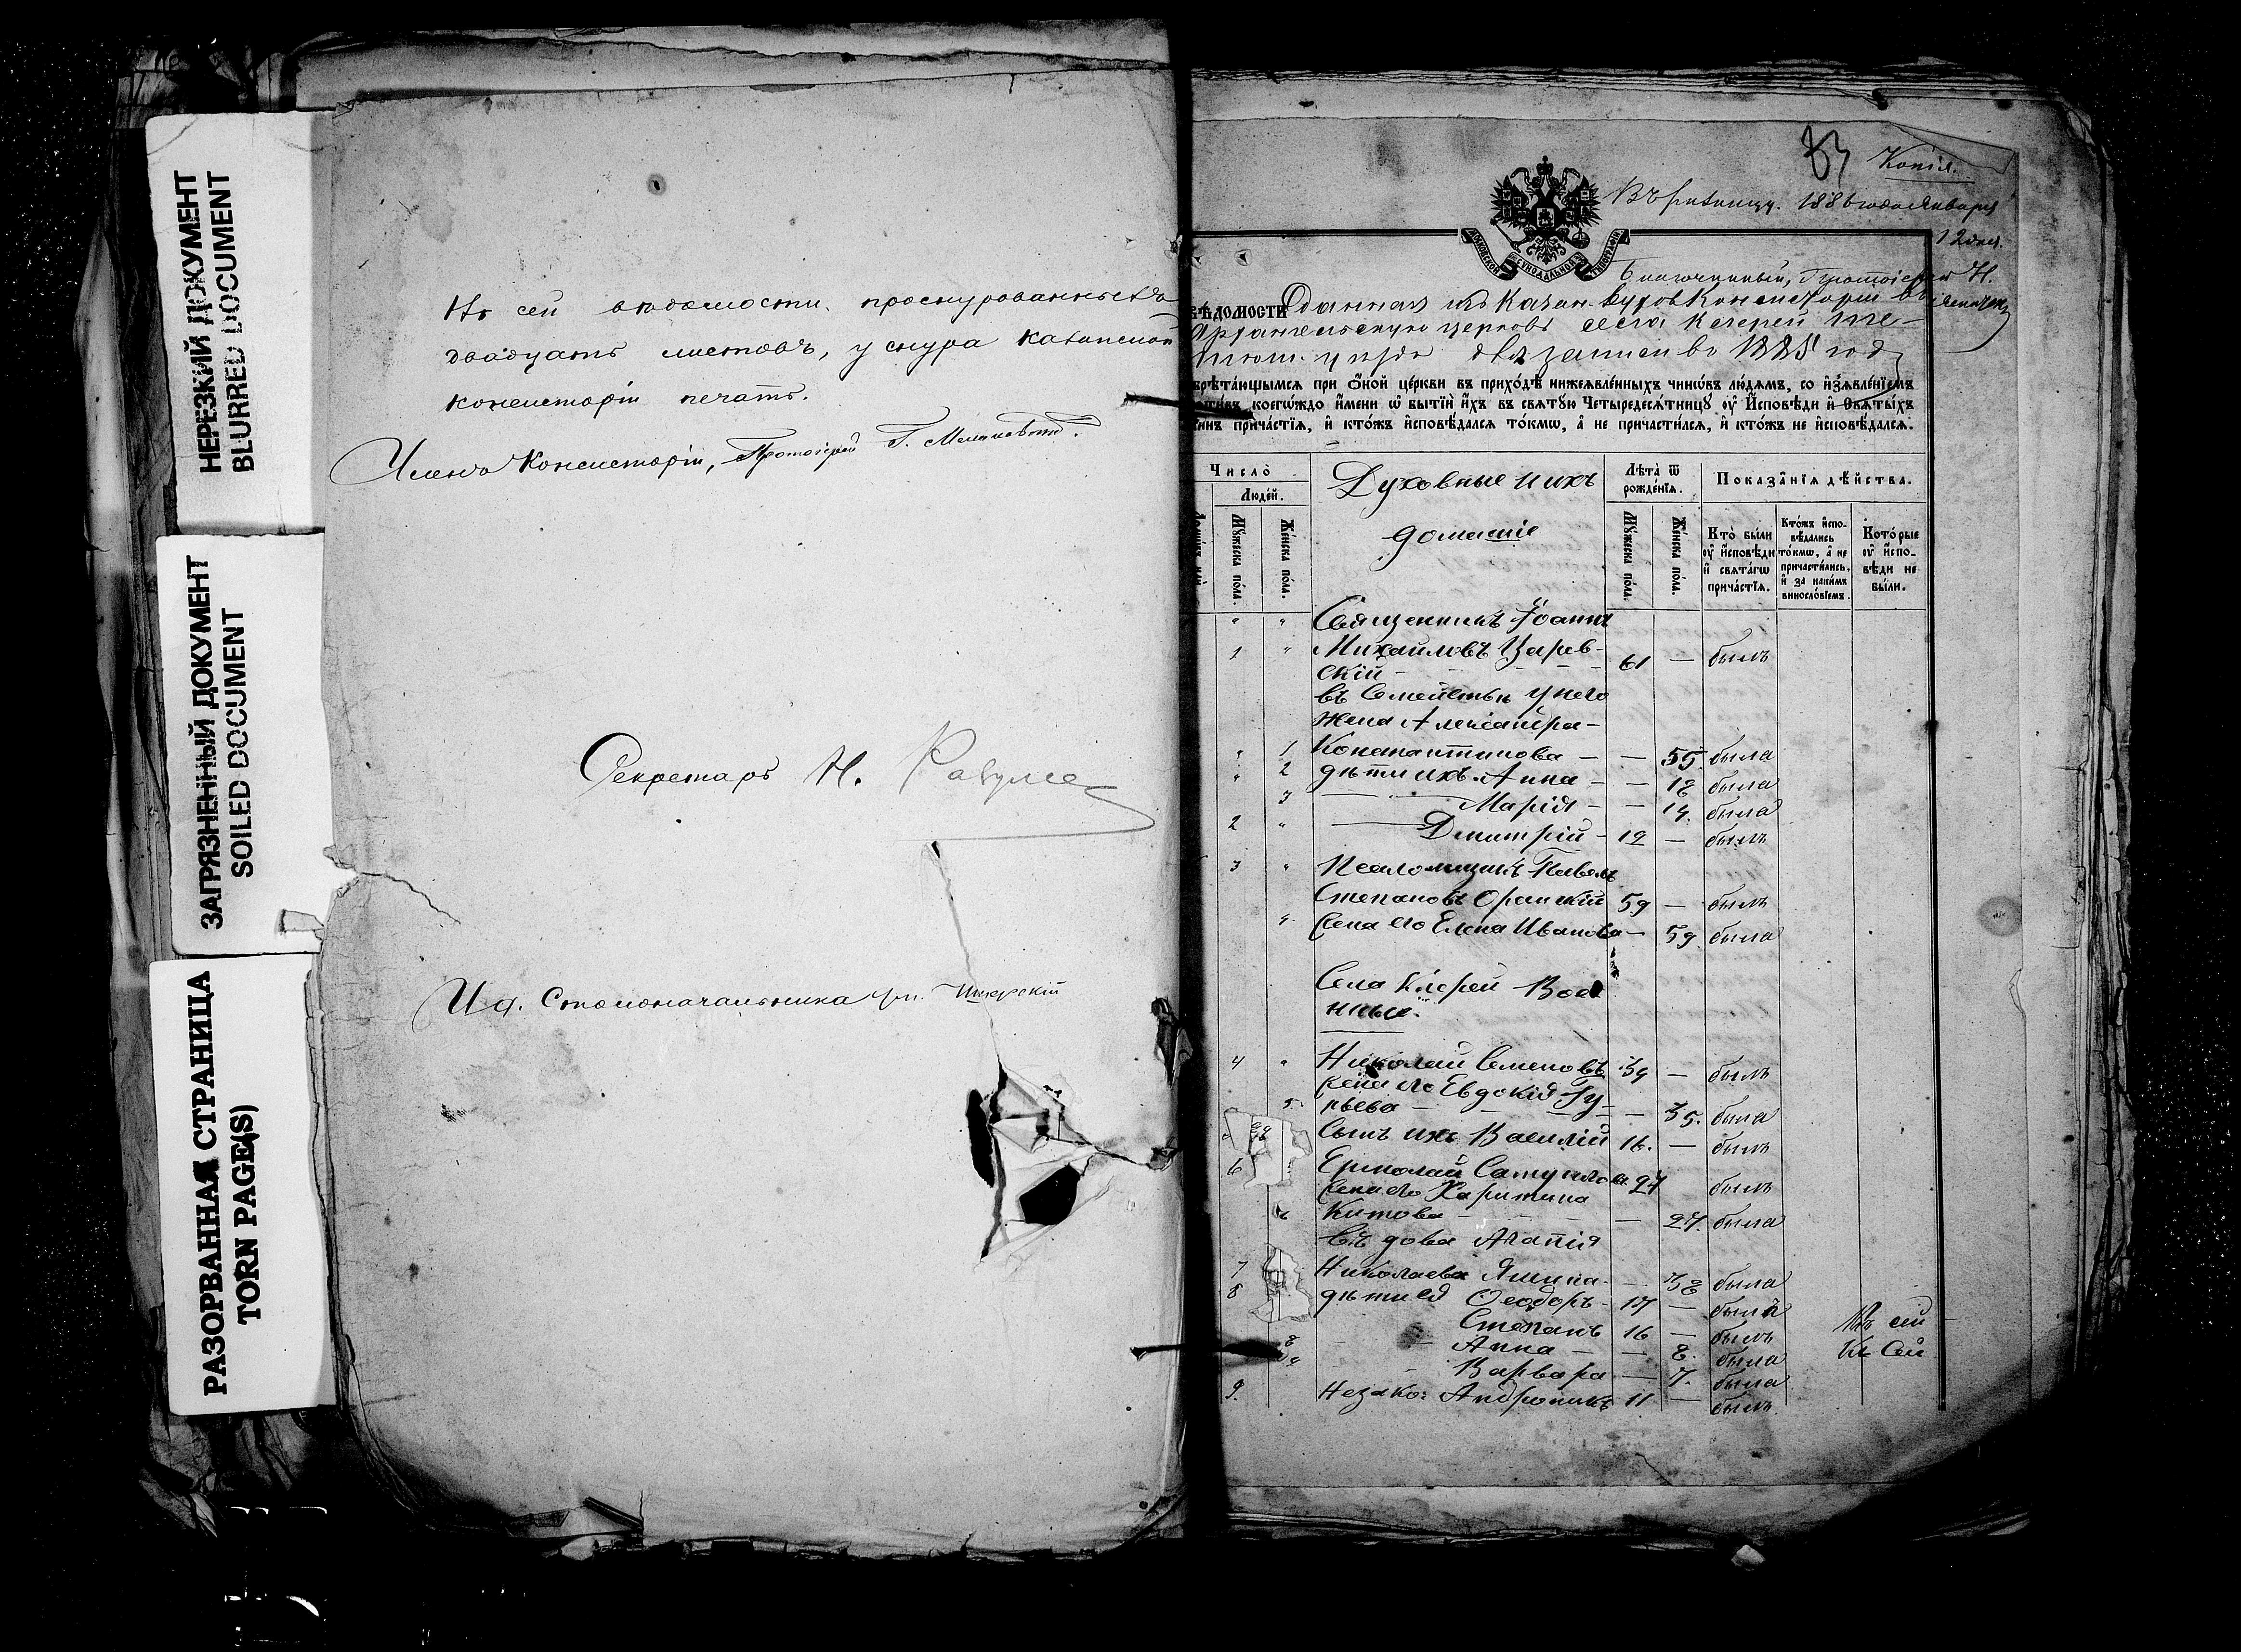 НЕРЕЗКИЙ ДОКУМЕНТ
BLURRED DOCUMENT
ЗАГРЯЗНЕННЫЙ ДОКУМЕНТ
SOILED DOCUMENT
РАЗОРВАННАЯ СТРАНИЦА
TORN PAGE(S)
Въ сей вѣдомости прошнурованныхъ
двадцать листовъ, у снура Казанской
консисторіи печать.
Членъ Консисторіи, Протоіерей
Секретарь Н.
И д. Столоначальника
Копія.
Въ ризницу. 1886 года Января
12 дня.
Благочинный, Протоіерей Н.
МОСКОВСКОЙ СѴНОДАЛЬНОЙ ТИПОГРАФІИ
ВѢДОМОСТИ Данная изъ Казан. Духов Консисторіи въ
Архангельскую церковь села
уѣзда для записи въ 1885 год
брѣтающымсѧ при оной церкви въ приходѣ нижеѧвленныхъ чинѡвъ людѧмъ, со изъѧвленіемъ
коегѡждо имени ѡ бытіи ихъ въ свѧтую Четыредесѧтницу ѹ Исповѣди и Свѧтыхъ
инъ причастіѧ, и ктожъ исповѣдалсѧ токмѡ, а не причастилсѧ, и ктожъ не исповѣдалсѧ.
Число
Людей.
Мужеска пола.
Женска пола.
Духовные и ихъ
домашніе
Лѣта ѿ рожденіѧ.
Мужеска пола.
Женска пола.
Показаніѧ дѣйства.
Кто были ѹ исповѣди и свѧтагѡ причастіѧ.
Ктожъ исповѣдались токмѡ, а не причастились, и за какимъ винословіемъ.
Которые ѹ исповѣди не были.
Священникъ Іоаннъ
1 " Михайловъ Царев-
скій - 61 — былъ
въ Семействѣ у него
жена Александра -
" 1 Константинова — — 55 была
" 2 дѣти ихъ Анна — — 18 была
3 Марія — — 14. была
2 " Дмитрій - 12 — былъ
3 " Псаломщикъ Павелъ
Степановъ 59 — былъ
4 жена его Елена Иванова — 59. была
Села
4 " Николай Семеновъ 39 — былъ
жена его Евдокія Гу-
5. рьева — — 35. была
Сынъ ихъ Василій 16. — былъ
6 Ермолай 27 былъ
жена его Харитина
6 Титова — — 27. была
вдова Агапія
7 Николаева — 38 была
8 дѣти ея Ѳеодоръ - 17 — былъ
Степанъ 16 — былъ
8 Анна — — 8. была
Варвара — 7. была
9. Незако: Андроникъ 11 — былъ